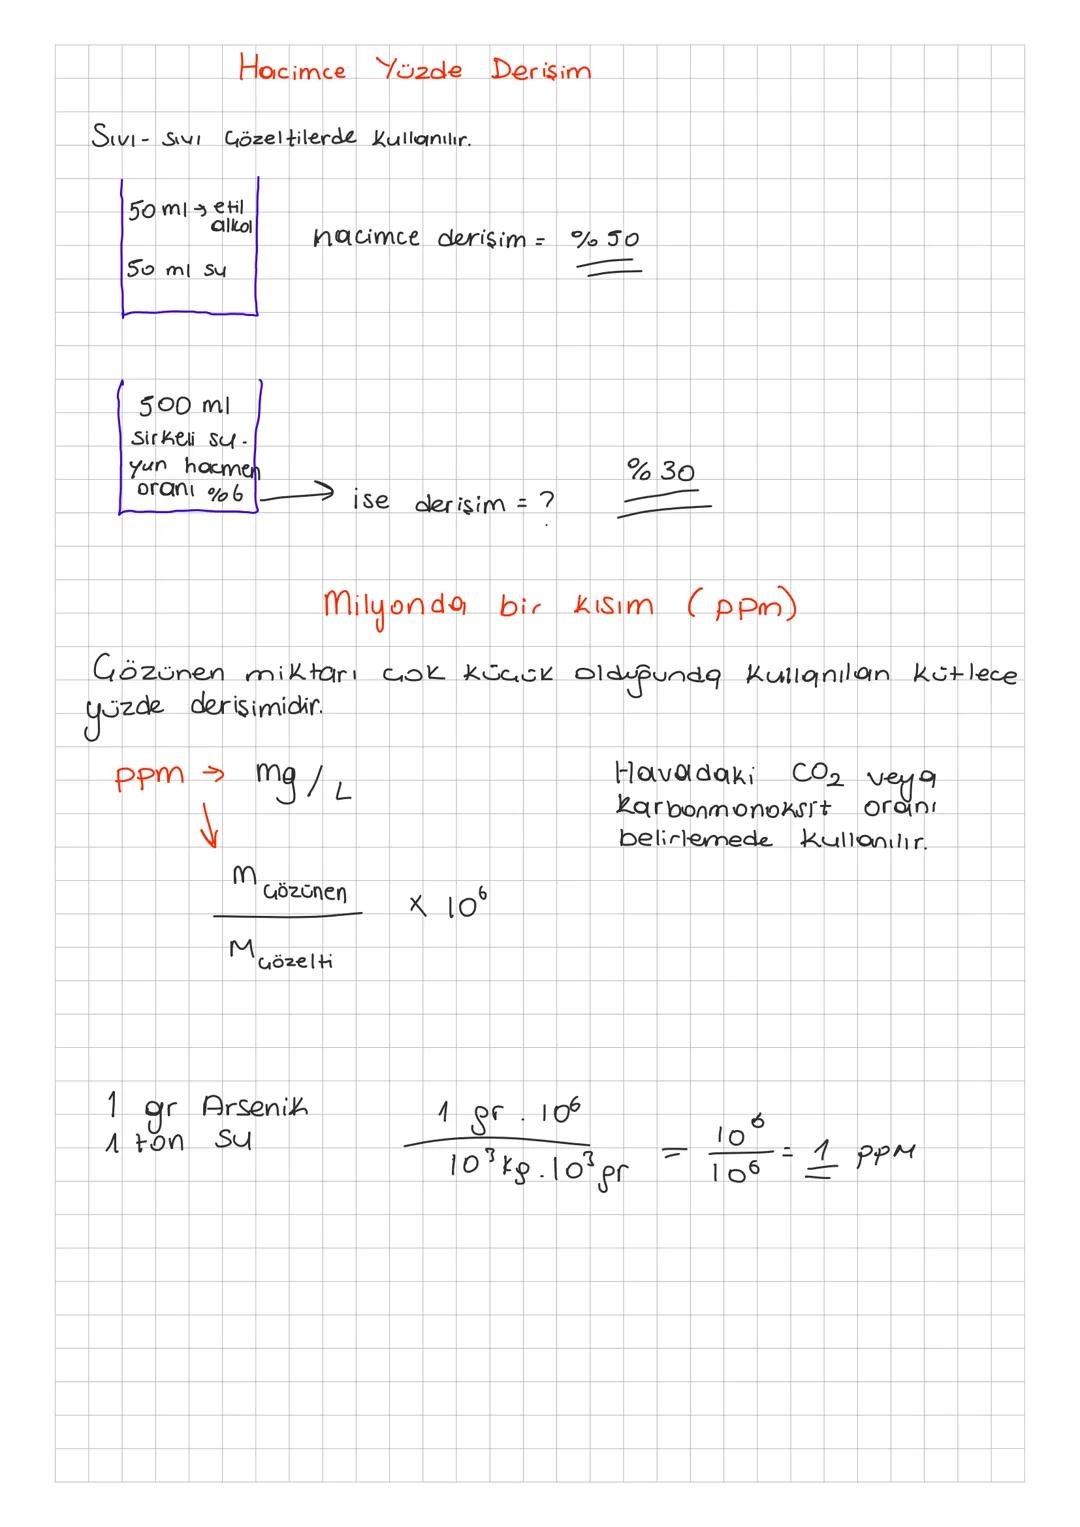 Hacimce Yüzde Derişim
Sıvı - sıvı çözeltilerde kullanılır.
50 ml → etil
alkol
50 ml su
hacimce derişim = %50
500 ml
sirkeli su-
yun hacmen
oranı %6 → ise derişim = ?
%30
Milyonda bir kısım (ppm)
Çözünen miktarı çok küçük olduğunda kullanılan kütlece
yüzde derişimidir.
ppm → mg/L
↓
m çözünen
M çözelti
x 10⁶
Havadaki CO₂ veya
karbonmonoksit oranı
belirlemede kullanılır.
1 gr Arsenik
1 ton su
1 gr . 10⁶
10³ kg . 10³ gr
= 10⁶
10⁶
= 1 ppM